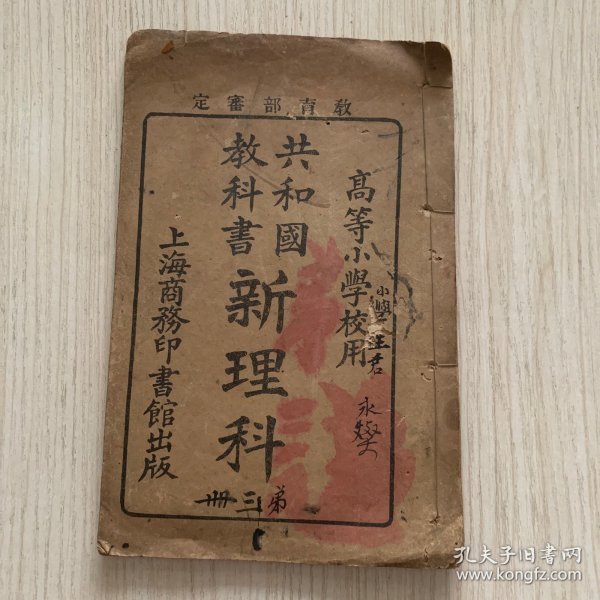 教育部審定
高等小學校用
共和國
教科書
新理科
弟三冊
上海商務印書館出版
小學
王君
永燮
孔夫子旧书网
www.kongfz.com